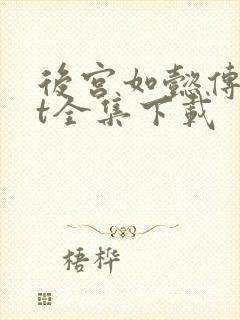 後宮如懿傳
t全集下載
梧桦